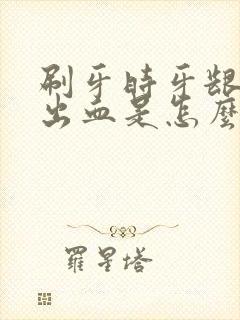 刷牙時牙龈
出血是怎麼
羅星塔